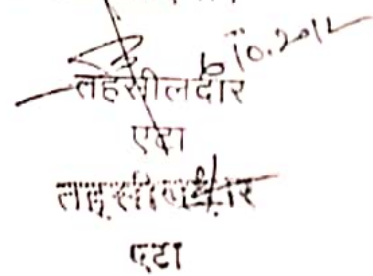 6.10.2012
तहसीलदार
एटा
तहसीलदार
एटा